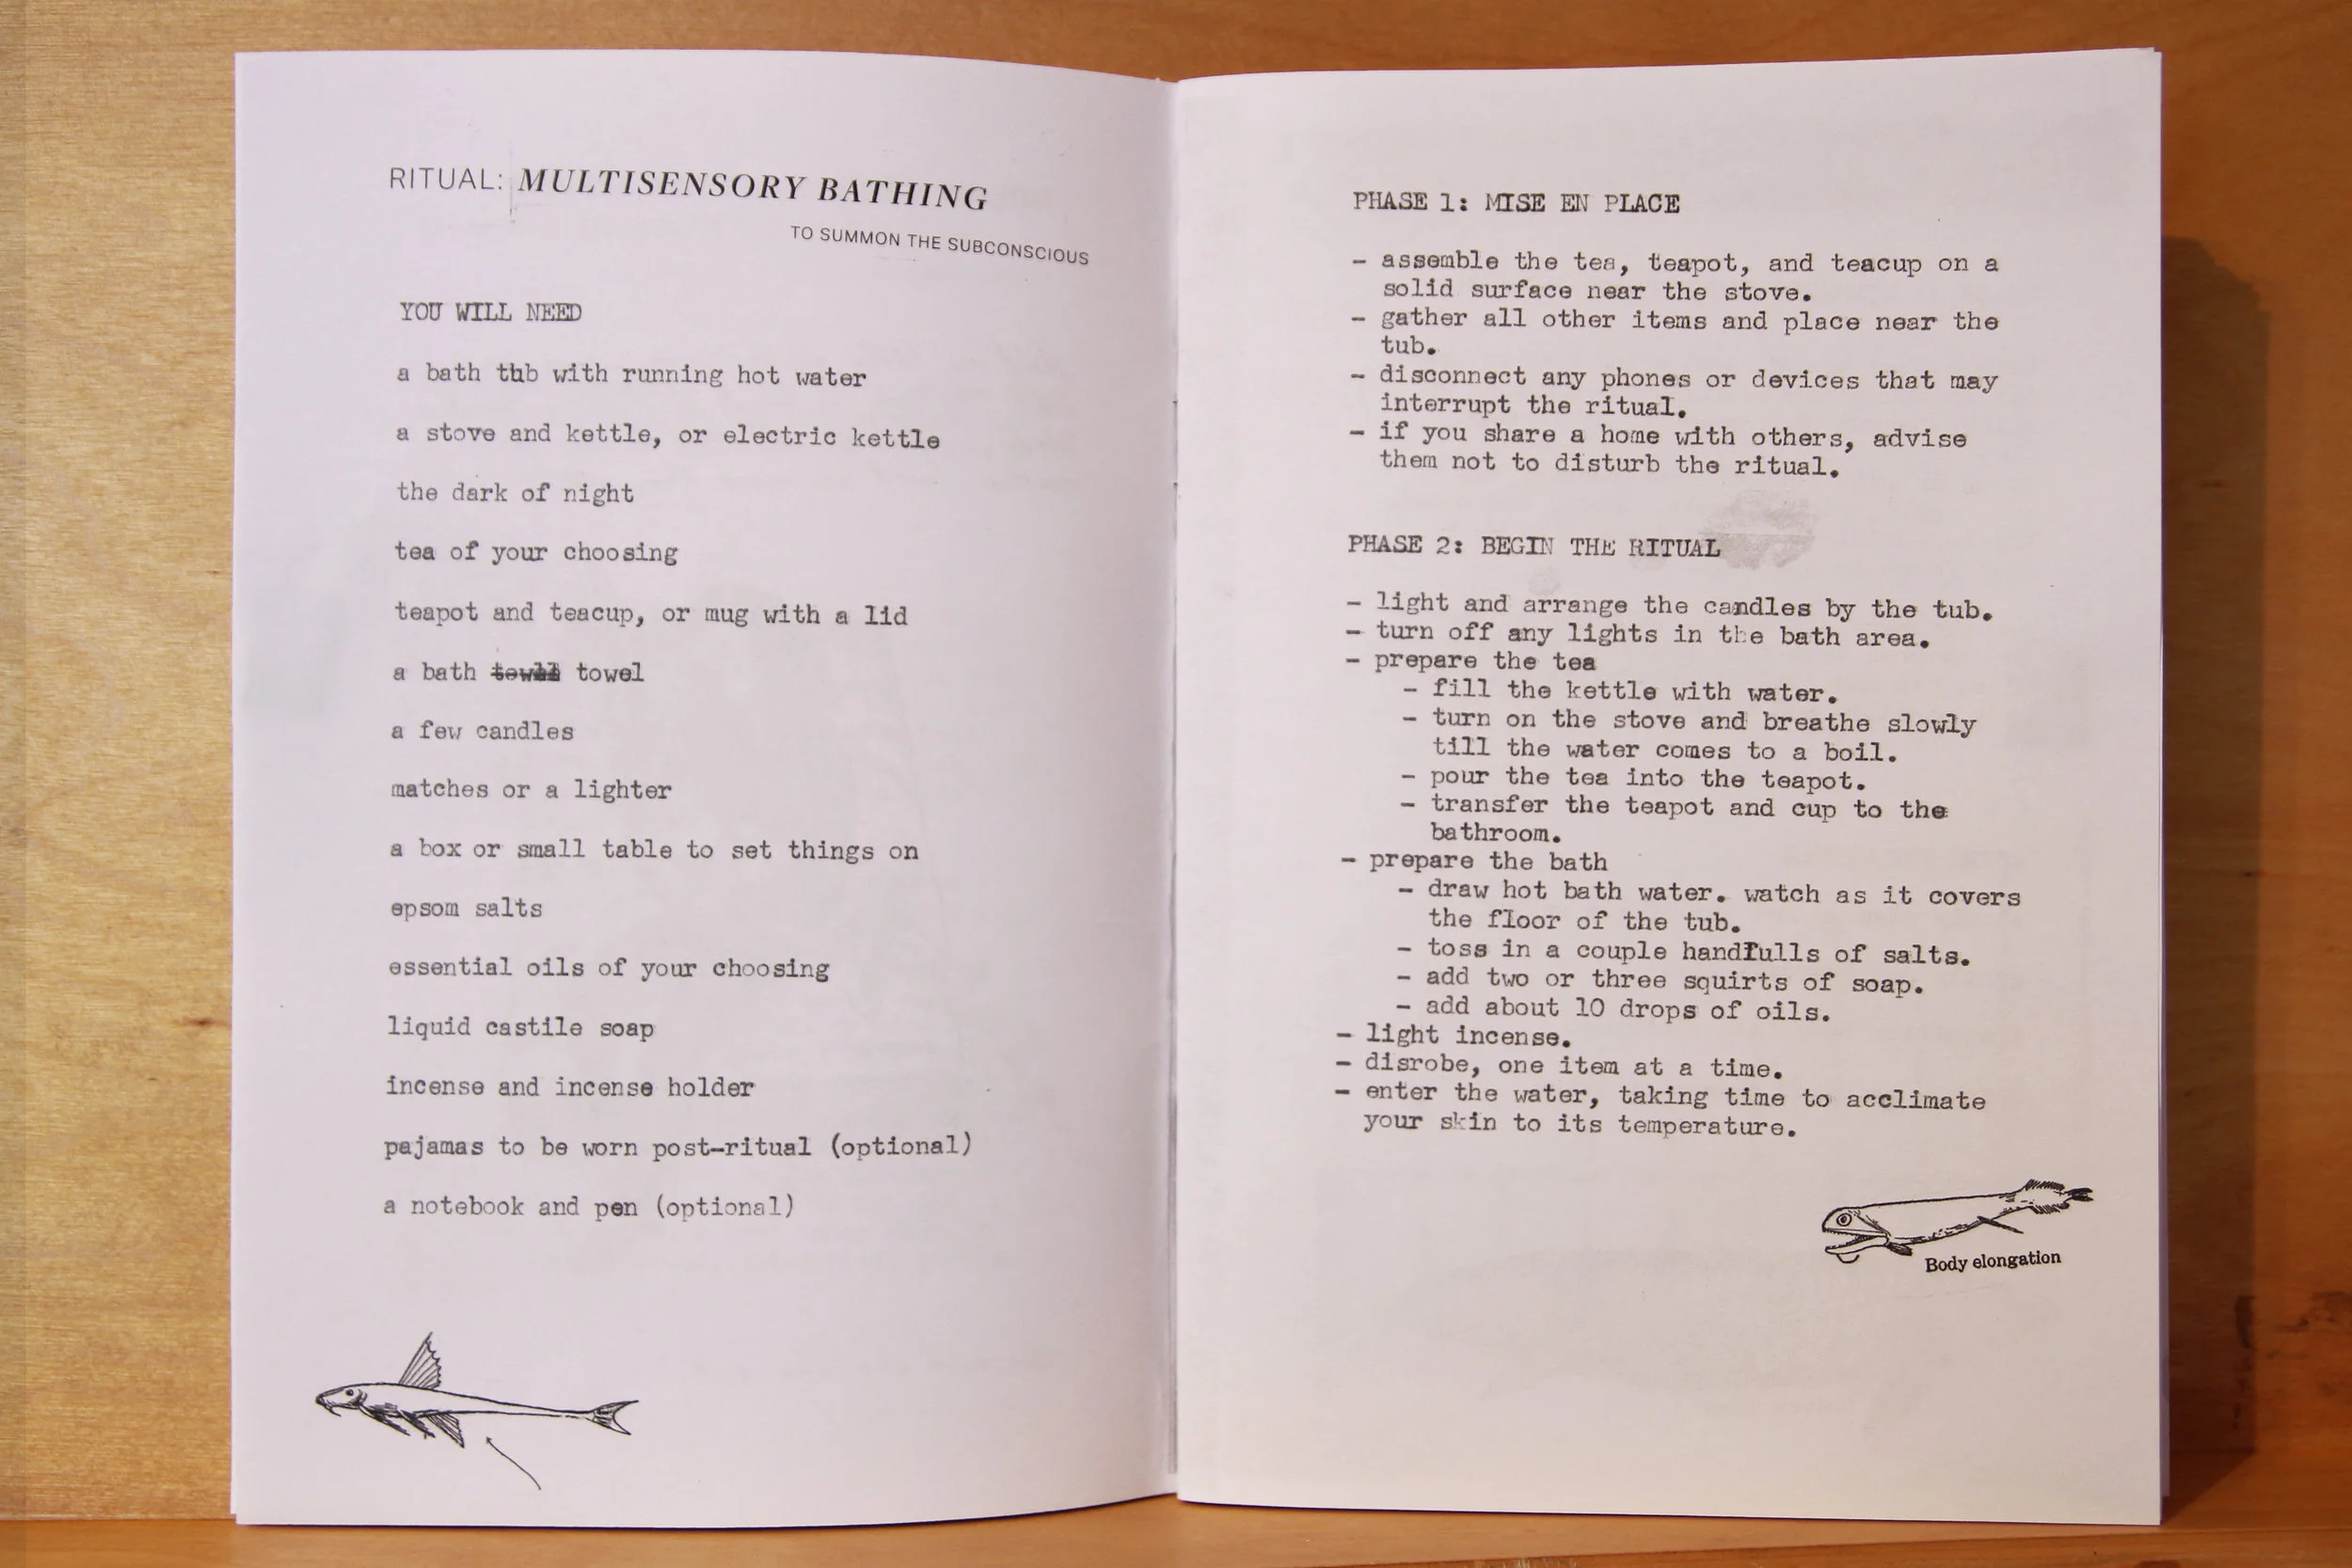 RITUAL: MULTISENSORY BATHING
TO SUMMON THE SUBCONSCIOUS
YOU WILL NEED
a bath tub with running hot water
a stove and kettle, or electric kettle
the dark of night
tea of your choosing
teapot and teacup, or mug with a lid
a bath towel
a few candles
matches or a lighter
a box or small table to set things on
epsom salts
essential oils of your choosing
liquid castile soap
incense and incense holder
pajamas to be worn post-ritual (optional)
a notebook and pen (optional)
PHASE 1: MISE EN PLACE
- assemble the tea, teapot, and teacup on a
solid surface near the stove.
- gather all other items and place near the
tub.
- disconnect any phones or devices that may
interrupt the ritual.
- if you share a home with others, advise
them not to disturb the ritual.
PHASE 2: BEGIN THE RITUAL
- light and arrange the candles by the tub.
- turn off any lights in the bath area.
- prepare the tea
- fill the kettle with water.
- turn on the stove and breathe slowly
till the water comes to a boil.
- pour the tea into the teapot.
- transfer the teapot and cup to the
bathroom.
- prepare the bath
- draw hot bath water. watch as it covers
the floor of the tub.
- toss in a couple handfulls of salts.
- add two or three squirts of soap.
- add about 10 drops of oils.
- light incense.
- disrobe, one item at a time.
- enter the water, taking time to acclimate
your skin to its temperature.
Body elongation